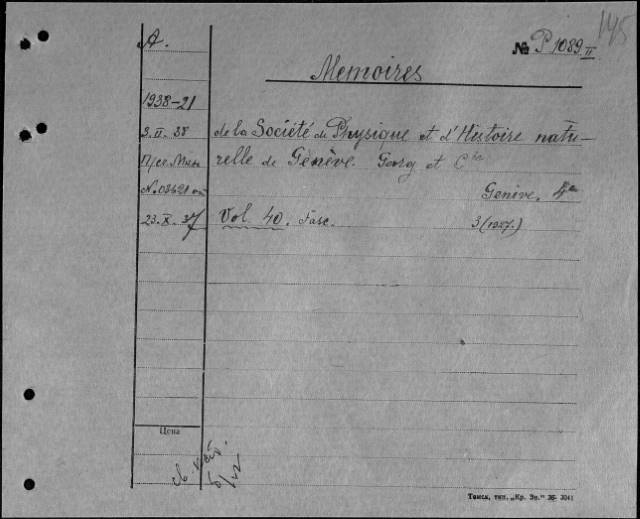 145
A.
№ P 1089 II
Memoires
1938-21
3.II.38 de la Société de Physique et d'Histoire natu-
relle de Genève. Georg et Cie
Genève. 4°
23.X.37 Vol. 40. Fasc. 3 (1927.)
Цена
б/ц
Томск, тип. „Кр. Зн." 36- 3041